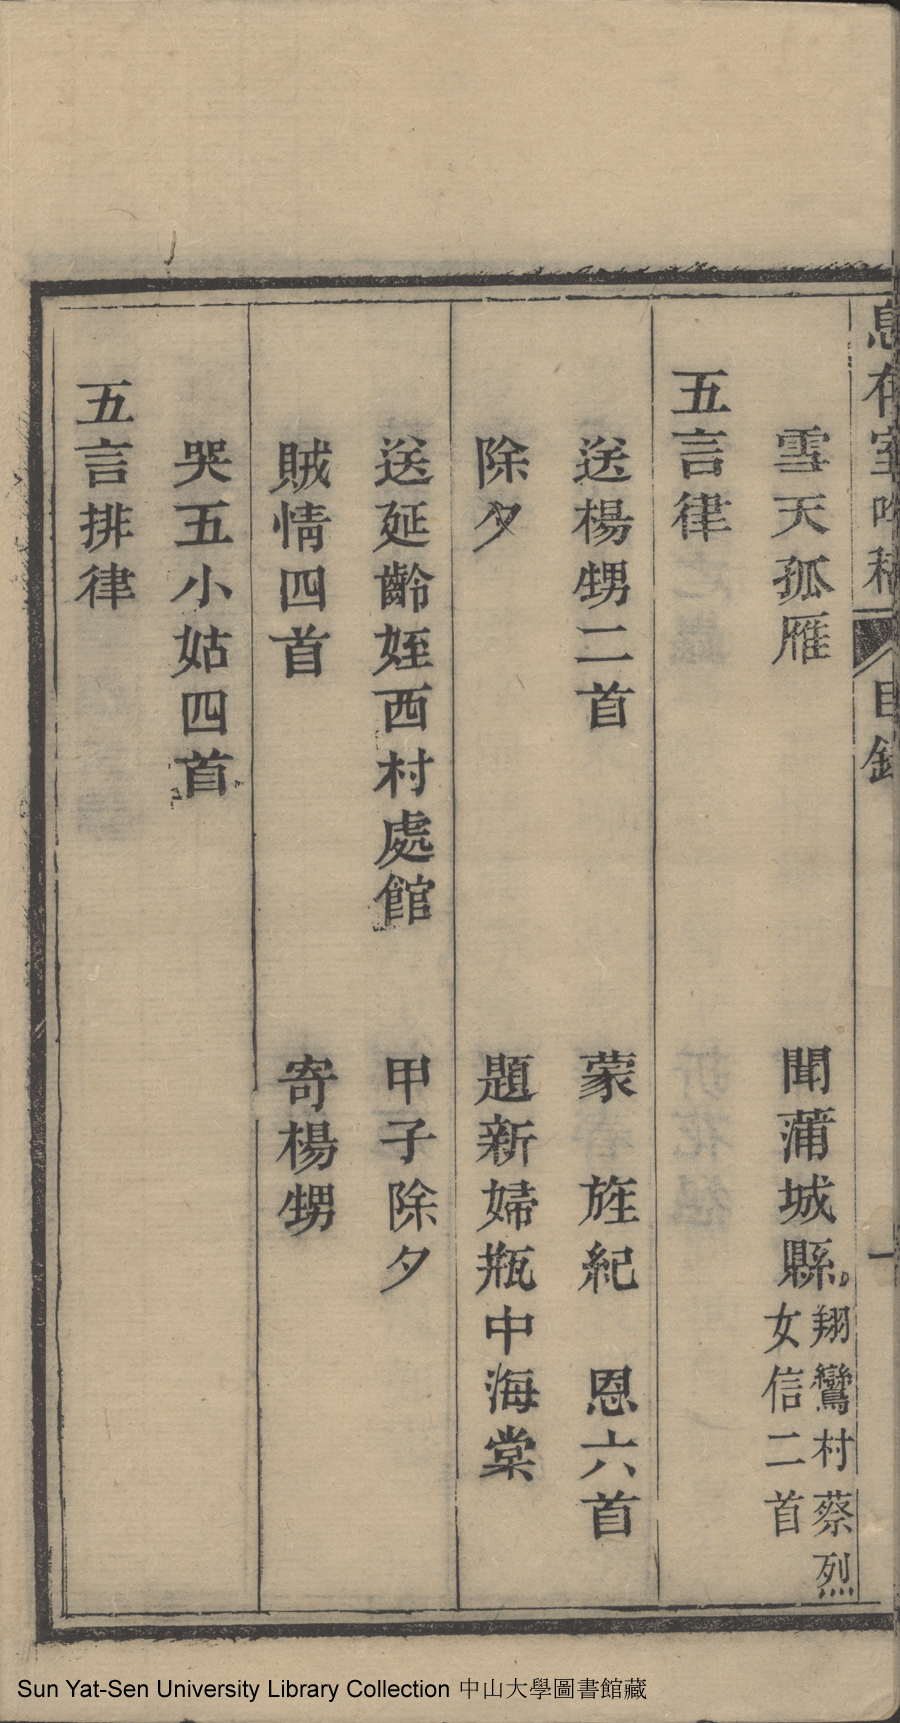 息存室吟稿 目錄 一
雪天孤雁 聞蒲城縣翔鸞村蔡烈女信二首
五言律
送楊甥二首 蒙 旌紀 恩六首
除夕 題新婦瓶中海棠
送延齡姪西村處館 甲子除夕
賊情四首 寄楊甥
哭五小姑四首
五言排律
Sun Yat-Sen University Library Collection 中山大學圖書館藏